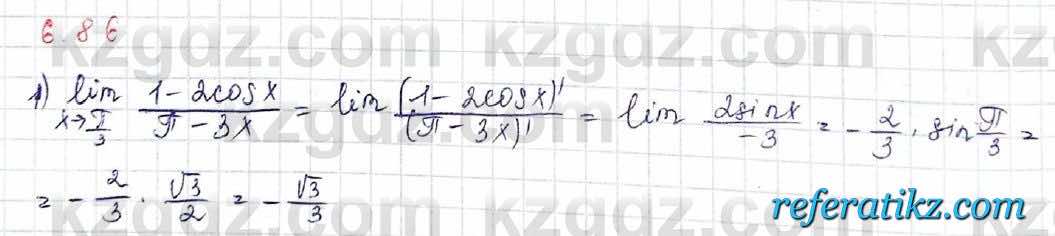 6.86
1) lim x→π/3 (1-2cosx)/(π-3x) = lim (1-2cosx)'/(π-3x)' = lim 2sinx/-3 = -2/3 · sin π/3 =
= -2/3 · √3/2 = -√3/3
kzgdz.com
referatikz.com